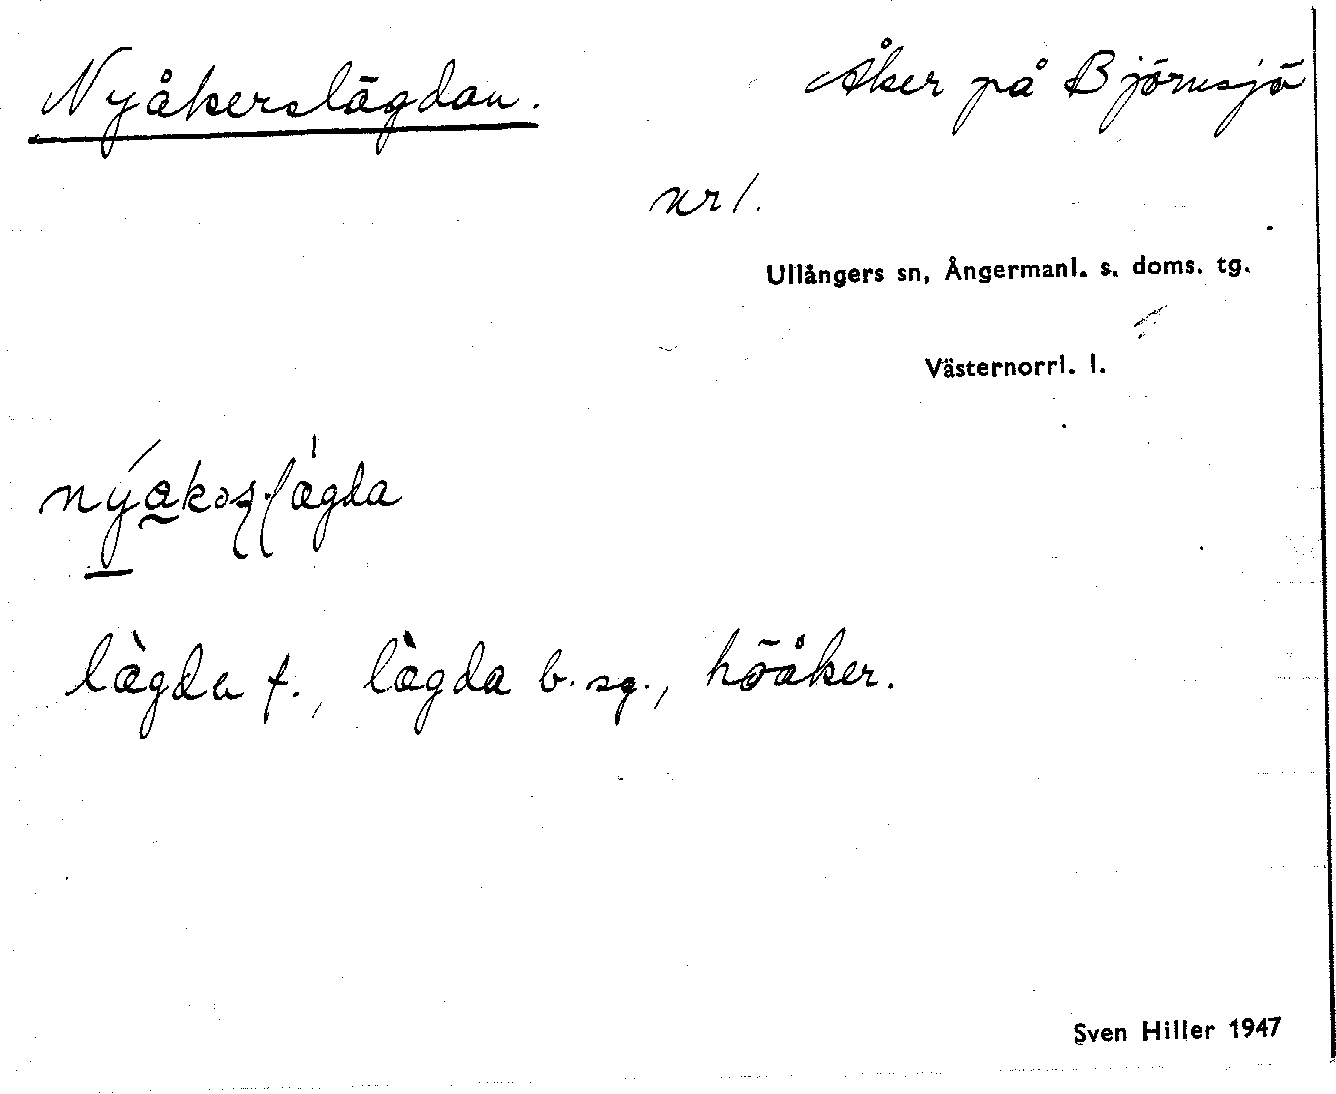 Nyåkerslägdan.
Åker på Björnsjö
nr 1.
Ullångers sn, Ångermanl. s. doms. tg.
Västernorrl. l.
lægda f., lægda b. sg., höåker.
Sven Hiller 1947